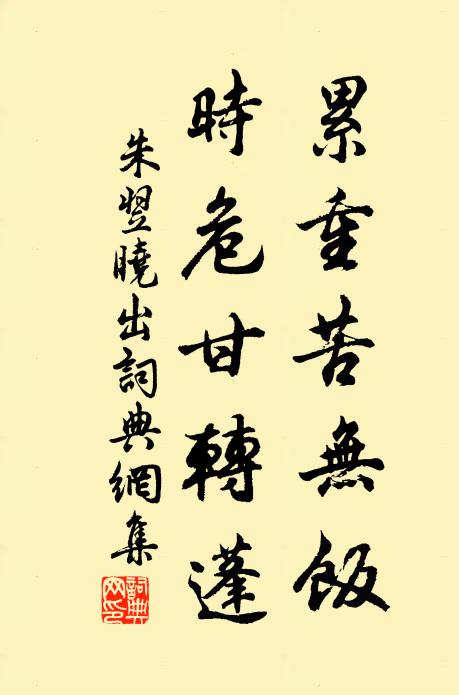 累重苦無飯
時危甘轉蓬
朱翌曉出詞典網集
詞典網印